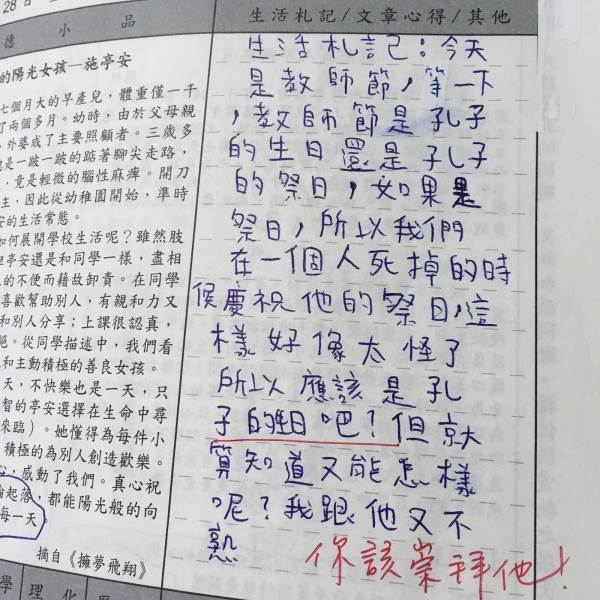 28 日
德 小 品
的陽光女孩—施亭安
七個月大的早產兒，體重僅一千
了兩個多月。幼時，由於父母親
，外婆成了主要照顧者。三歲多
總是一跛一跛的踮著腳尖走路，
，竟是輕微的腦性麻痺。開刀
主，因此從幼稚園開始，準時
安的生活常態。
如何展開學校生活呢？雖然肢
亭安還是和同學一樣，盡相
的不便而藉故卸責。在同學
喜歡幫助別人，有親和力又
和別人分享；上課很認真，
。從同學描述中，我們看
和主動積極的善良女孩。
天，不快樂也是一天，只
智的亭安選擇在生命中尋
來臨）。她懂得為每件小
積極的為別人創造歡樂。
心，感動了我們。真心祝
起落，都能陽光般的向
每一天
摘自《擁夢飛翔》
學 理 化
生活札記/文章心得/其他
生活札記：今天
是教師節，等一下
，教師節是孔子
的生日還是孔子
的祭日，如果是
祭日，所以我們
在一個人死掉的時
候慶祝他的祭日，這
樣好像太怪了
所以應該是孔
子的生日吧？但就
算知道又能怎樣
呢？我跟他又不
熟
你該崇拜他！